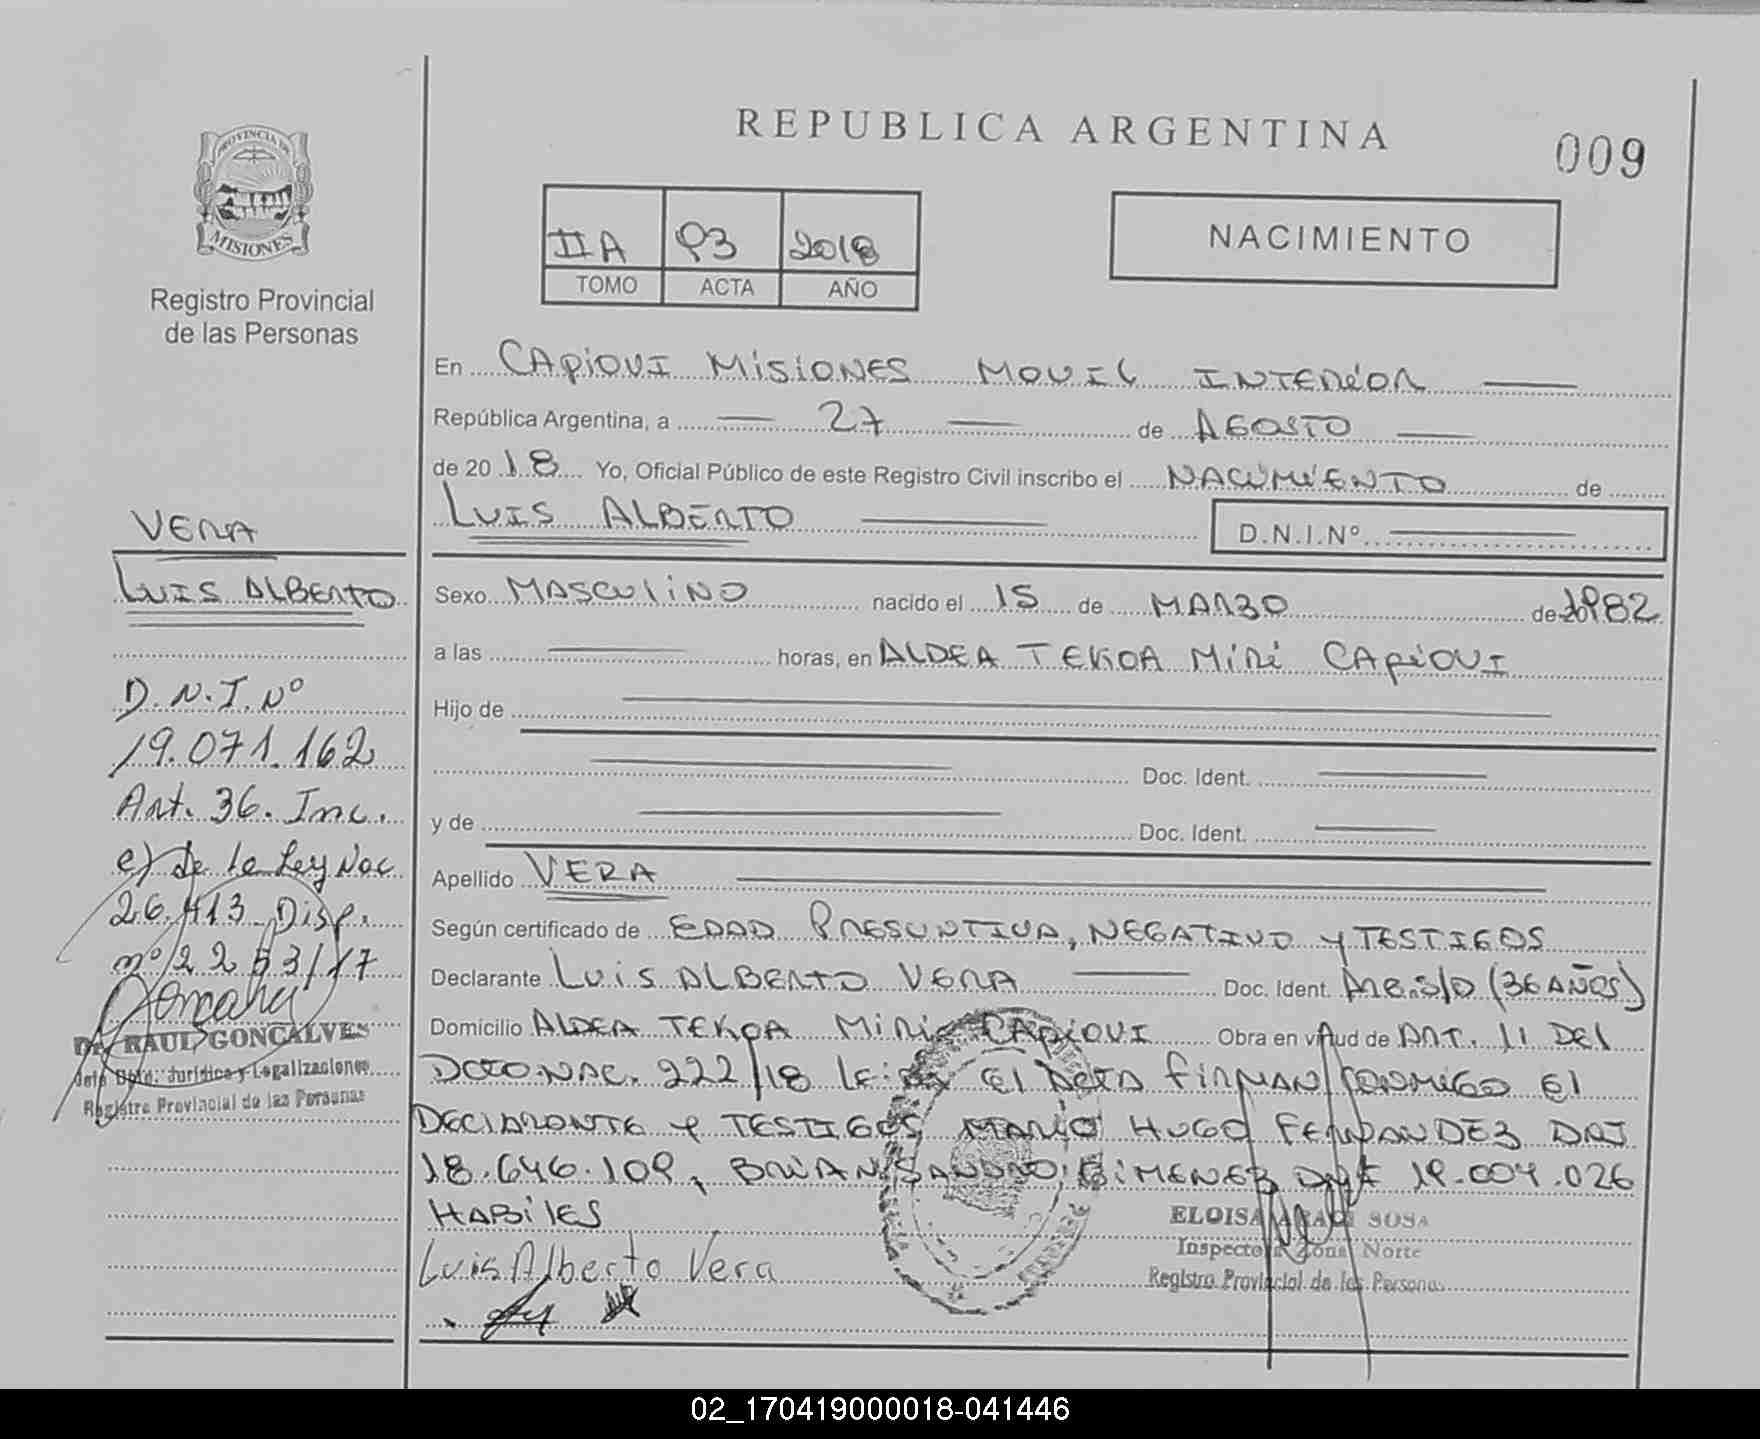 REPUBLICA ARGENTINA
009
PROVINCIA DE
MISIONES
Registro Provincial
de las Personas
IIA 93 2018
TOMO ACTA AÑO
NACIMIENTO
En CAPIOVI MISIONES MOVIL INTERIOR
República Argentina, a 27 de AGOSTO
de 2018 Yo, Oficial Público de este Registro Civil inscribo el NACIMIENTO de
LUIS ALBERTO D.N.I.Nº
Sexo MASCULINO nacido el 15 de MARZO de 1982
a las horas, en ALDEA TEKOA MIRI CAPIOVI
Hijo de
Doc. Ident.
y de Doc. Ident.
Apellido VERA
Según certificado de EDAD PRESUNTIVA, NEGATIVO Y TESTIGOS
Declarante LUIS ALBERTO VERA Doc. Ident. (36 AÑOS)
Domicilio ALDEA TEKOA MIRI CAPIOVI Obra en virtud de ART. 11 DEL
DCTO NAC. 222/18 Leida el ACTA FIRMAN CONMIGO El
DECLARANTE Y TESTIGOS MARIO HUGO FERNANDEZ DNI
18.646.109, BRIAN SANDRO GIMENEZ DNI 19.004.026
HABILES
Luis Alberto Vera
ELOISA SOSA
Inspectora Zona Norte
Registro Provincial de las Personas
VERA
LUIS ALBERTO
D.N.I. Nº
19.071.162
Art. 36. Inc.
e) de la Ley Nac.
26.413 Disp.
nº 2253/17
Dr. RAUL GONCALVES
Jefe Dpto. Juridico y Legalizaciones
Registro Provincial de las Personas
02_170419000018-041446